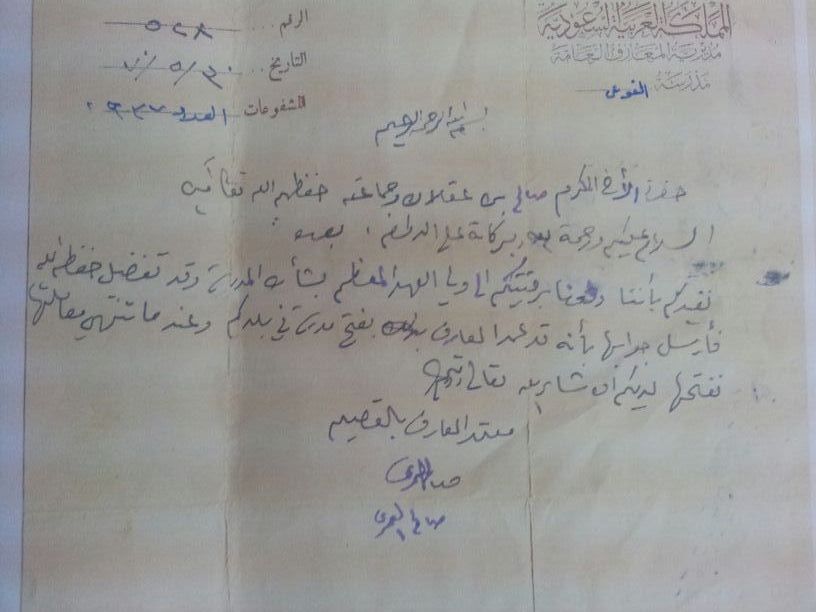 المملكة العربية السعودية
مديرية المعارف العامة
مدرسة
الرقم ... ٥٢٨
التاريخ ...
المشفوعات العدد
بسم الله الرحمن الرحيم
حضرة الأخ المكرم صالح بن عقلا وجماعته حفظهم الله تعالى
السلام عليكم ورحمة الله وبركاته على الدوام . بعده
نفيدكم بأننا رفعنا برقيتكم الى ولي العهد المعظم بشأن المدرسة وقد تفضل حفظه الله
فأرسل جوابها بأنه قد عمد المعارف بفتح مدرسة في بلدكم وعند ما تنتهي معاملتها
نفتحها لديكم ان شاء الله تعالى ودمتم
معتمد المعارف بالقصيم
صالح العمري